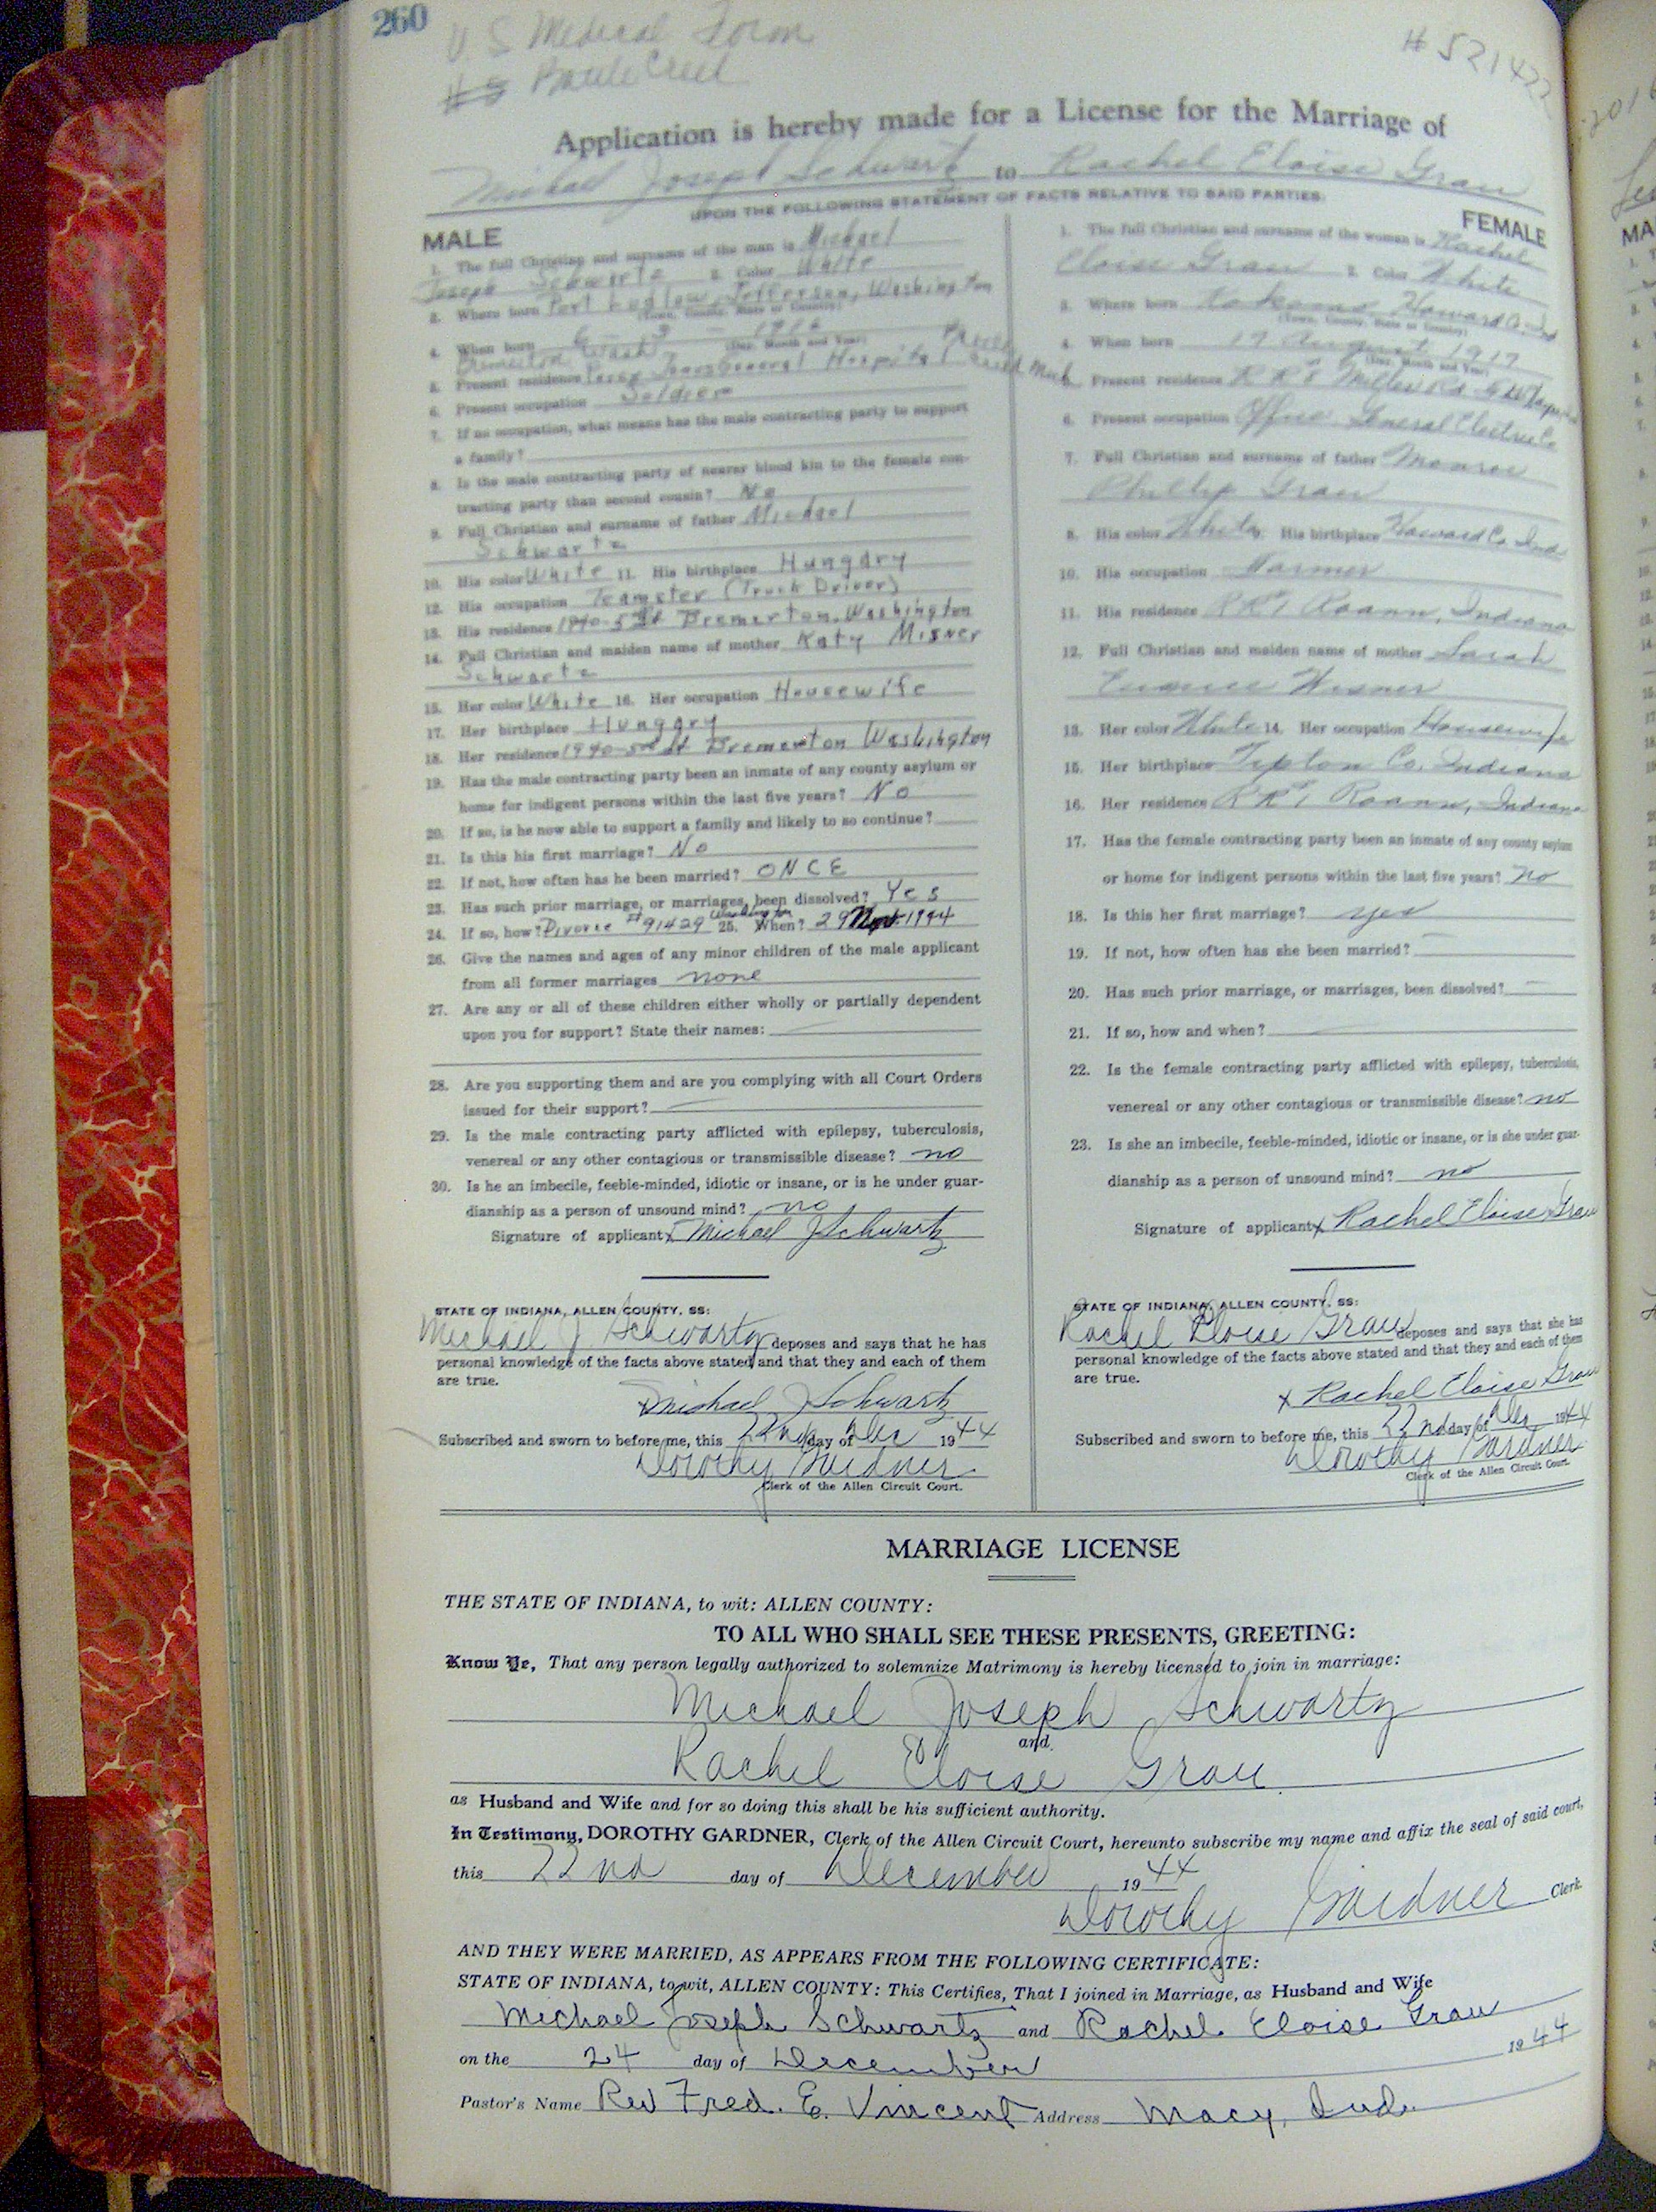 260
U.S Medical Form
Battle Creek
# 521422
Application is hereby made for a License for the Marriage of
Michael Joseph Schwartz to Rachel Eloise Grau
UPON THE FOLLOWING STATEMENT OF FACTS RELATIVE TO SAID PARTIES:
MALE
1. The full Christian and surname of the man is Michael
Joseph Schwartz 2. Color White
3. Where born Port Ludlow, Jefferson, Washington
(Town, County, State or Country)
4. When born
(Day, Month and Year)
Bremerton Wash
5. Present residence Percy Jones General Hospital
6. Present occupation Soldier
7. If no occupation, what means has the male contracting party to support
a family?
8. Is the male contracting party of nearer blood kin to the female con-
tracting party than second cousin? No
9. Full Christian and surname of father Michael
Schwartz
10. His color White 11. His birthplace Hungary
12. His occupation Teamster (Truck Driver)
13. His residence 1940-5th St Bremerton, Washington
14. Full Christian and maiden name of mother Katy Misner
Schwartz
15. Her color White 16. Her occupation Housewife
17. Her birthplace Hungary
18. Her residence 1940-5th St Bremerton Washington
19. Has the male contracting party been an inmate of any county asylum or
home for indigent persons within the last five years? No
20. If so, is he now able to support a family and likely to so continue?
21. Is this his first marriage? No
22. If not, how often has he been married? ONCE
23. Has such prior marriage, or marriages, been dissolved? Yes
24. If so, how? Divorce #91429 Washington 25. When? 29 1944
26. Give the names and ages of any minor children of the male applicant
from all former marriages none
27. Are any or all of these children either wholly or partially dependent
upon you for support? State their names:
28. Are you supporting them and are you complying with all Court Orders
issued for their support?
29. Is the male contracting party afflicted with epilepsy, tuberculosis,
venereal or any other contagious or transmissible disease? no
30. Is he an imbecile, feeble-minded, idiotic or insane, or is he under guar-
dianship as a person of unsound mind? no
Signature of applicant x Michael J Schwartz
STATE OF INDIANA, ALLEN COUNTY, SS:
Michael J Schwartz deposes and says that he has
personal knowledge of the facts above stated and that they and each of them
are true.
x Michael J Schwartz
Subscribed and sworn to before me, this 22nd day of Dec 1944
Dorothy Gardner
Clerk of the Allen Circuit Court.
FEMALE
1. The full Christian and surname of the woman is Rachel
Eloise Grau 2. Color White
3. Where born Kokomo Howard Co. Ind
(Town, County, State or Country)
4. When born 17 August 1917
(Day, Month and Year)
5. Present residence R R 5 Miller Rd Ft Wayne
6. Present occupation Office General Electric Co
7. Full Christian and surname of father Monroe
Phillip Grau
8. His color White 9. His birthplace Howard Co. Ind
10. His occupation Farmer
11. His residence RR 1 Roann, Indiana
12. Full Christian and maiden name of mother Sarah
Eunice Wisner
13. Her color White 14. Her occupation Housewife
15. Her birthplace Tipton Co. Indiana
16. Her residence RR 1 Roann, Indiana
17. Has the female contracting party been an inmate of any county asylum
or home for indigent persons within the last five years? no
18. Is this her first marriage? yes
19. If not, how often has she been married?
20. Has such prior marriage, or marriages, been dissolved?
21. If so, how and when?
22. Is the female contracting party afflicted with epilepsy, tuberculosis,
venereal or any other contagious or transmissible disease? no
23. Is she an imbecile, feeble-minded, idiotic or insane, or is she under guar-
dianship as a person of unsound mind? no
Signature of applicant x Rachel Eloise Grau
STATE OF INDIANA, ALLEN COUNTY, SS:
Rachel Eloise Grau deposes and says that she has
personal knowledge of the facts above stated and that they and each of them
are true.
x Rachel Eloise Grau
Subscribed and sworn to before me, this 22nd day of Dec 1944
Dorothy Gardner
Clerk of the Allen Circuit Court.
MARRIAGE LICENSE
THE STATE OF INDIANA, to wit: ALLEN COUNTY:
TO ALL WHO SHALL SEE THESE PRESENTS, GREETING:
Know Ye, That any person legally authorized to solemnize Matrimony is hereby licensed to join in marriage:
Michael Joseph Schwartz
and
Rachel Eloise Grau
as Husband and Wife and for so doing this shall be his sufficient authority.
In Testimony, DOROTHY GARDNER, Clerk of the Allen Circuit Court, hereunto subscribe my name and affix the seal of said court,
this 22nd day of December 1944
Dorothy Gardner Clerk
AND THEY WERE MARRIED, AS APPEARS FROM THE FOLLOWING CERTIFICATE:
STATE OF INDIANA, to wit, ALLEN COUNTY: This Certifies, That I joined in Marriage, as Husband and Wife
Michael Joseph Schwartz and Rachel Eloise Grau
on the 24 day of December 1944
Pastor's Name Rev Fred. E. Vincent Address Macy, Ind.